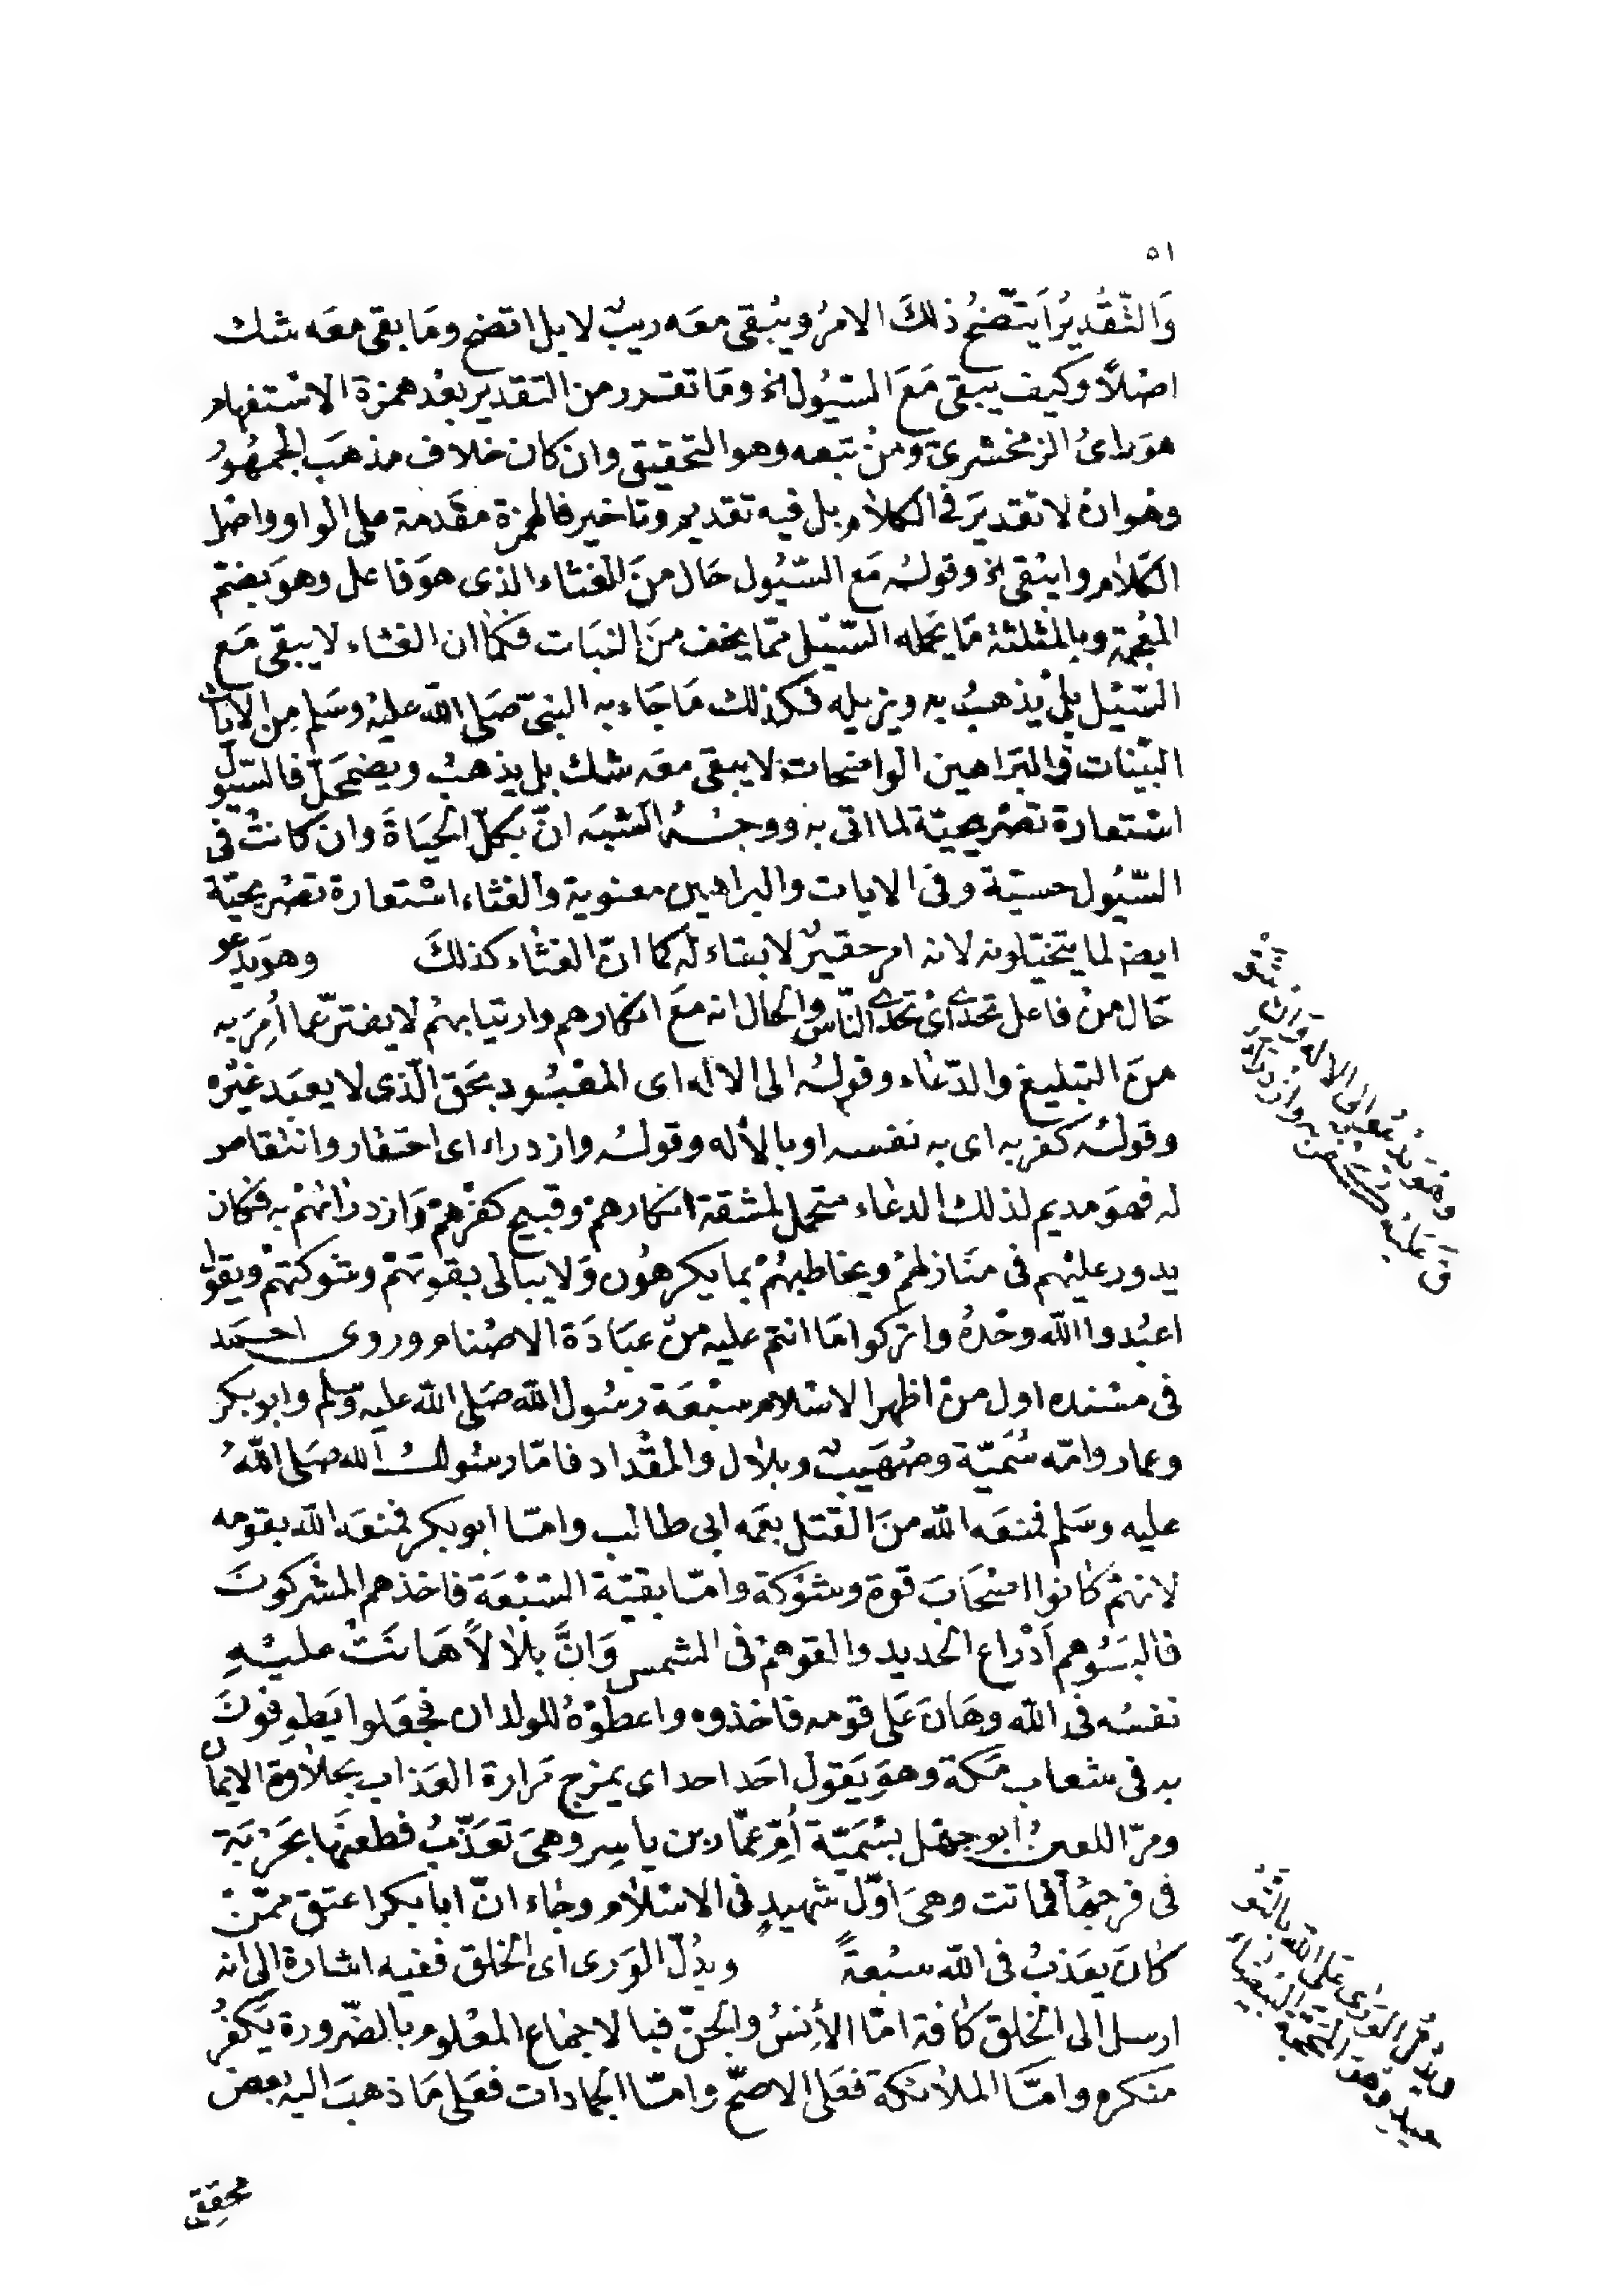 ٥١
وَالتَّقْدِيرُ اَيتّضحُ ذلكَ الامرُ ويبْقى معَه ريبٌ لا بل اتضح ومَا بقى معَه شك
اصْلاً وكيف يبقى مَعَ السّيُول الخ وما تقرر من التقدير بعْد همزة الاسْتفهام
هوَ راىُ الزمخشرىّ وَمنْ تبعه وهو التحقيق وان كان خلاف مذهبَ الجمهُورُ
وهْوانْ لا تقديرَ فى الكلام بل فيه تقديم وتاخير فالهمزة مقَدمة على الواو واصْل
الكَلام وايبْقى الخ وقولهُ مَع السّيُول حَال منَ الغثاء الذى هوَ فاعل وهوَ بضمّ
المعْجمة وبالمثلثة مَا يحمله السّيْل ممّا يخف منَ النبَات فكما ان الغثاء لا يبقى مَع
السّيْل بلْ يذهبُ به ويزيله فكذلك مَا جَاء به النبىّ صَلى الله عليْه وسَلم مِن الايات
البيّنات والبَراهين الواضحات لا يبقى معَه شك بل يذهبُ ويضمحلّ فالسّيُول
اسْتعارة تصْريحيّة لما اتى به ووجْهُ الشبَه انّ بكلّ الحيَاةَ وان كانتْ فى
السّيُول حسيّة وفى الايات والبراهين معنوية والغثاء اسْتعارة تصْريحيّة
ايضا لما يتخيّلونه لانه امر حقيرٌ لا بقاء له كما انّ الغثاء كذلكَ وهوَ يدْعو
حَال منْ فاعل تحدّى اىْ تحدّى النّاس والحال انه معَ انكارهم وارتيابهمْ لا يفترّ عما أُمِرَ به
منَ التبليغ والدّعاء وقولهُ الى الاله اى المعْبُود بحَق الّذى لا يعبَد غيْره
وقولهُ كفر به اى به نفسه او بالاله وقولهُ وازدراء اى احتقار وانتقاص
له فهوَ مديم لذلك الدعاء متحمل لمشقة انكارهمْ وقبيح كفرْهمْ وَازدرائهمْ به فكان
يدور عليْهم فى منَازلهمْ ويخاطبهُمْ بما يكرهُون وَلا يبالى بقوتهمْ وشوكتهمْ ويقول
اعبُدوا الله وحْدهُ واتركوا مَا انتم عليه منْ عبَادَة الاصْنام وروى احمَد
فى مسْنده اول منْ اظهر الاسْلام سبْعَة رسُول الله صَلى الله عليه وسلم وابو بكر
وعمار وامّه سُميّة وصُهَيبٌ وبلال والمقْداد فامّا رسُولُ الله صَلى اللهُ
عليه وسَلم فمنعَه الله منَ القتل بعَمه ابى طالب وامّا ابو بكر فمنعَه الله بقومه
لانهمْ كانوا اصْحَابَ قوة وشوْكة وامّا بقيّة السّبْعَة فاخذهم المشْركونَ
فالبَسُوهم اَدْراع الحديد والقوهمْ فى الشمس وَانَّ بلالاً هَانَتْ عليْهِ
نفسُه فى الله وهَانَ عَلى قومه فاخذوه واعطوْهُ للولدان فجعَلوا يَطوفونَ
به فى شعاب مكة وهوَ يَقول احَد احد اى يمزج مَرارة العَذاب بحَلاوة الايمان
ومرّ اللعينُ ابو جهل بسُمَيّة اُمّ عمّار بن ياسِر وهىَ تعَذّبُ فطعنها بحَرْبَة
فى فرجهَا فماتت وهىَ اوّل شهيدٍ فى الاسْلام وجاء انّ ابا بكر اعتق ممّنْ
كانَ يعَذبُ فى الله سبْعةً ويدُلّ الوَرى اى الخلق ففيه اشارة الى انه
ارسل الى الخلق كافة امّا الأِنسُ والجنّ فبالاجماع المعْلوم بالضّرورة يَكفرُ
منكره وامّا الملائكة فعَلى الاصحّ وامّا الجمادات فعَلى مَا ذهبَ اليْه بعض
محققى
وهْوَ يدْعُو الى الاله وَان شقّ
ق عَليْه كفر به وازدراءُ
ويدُلّ الوَرى عَلى الله بالتّوْ
حيد وهو المحجة البيْضاءُ